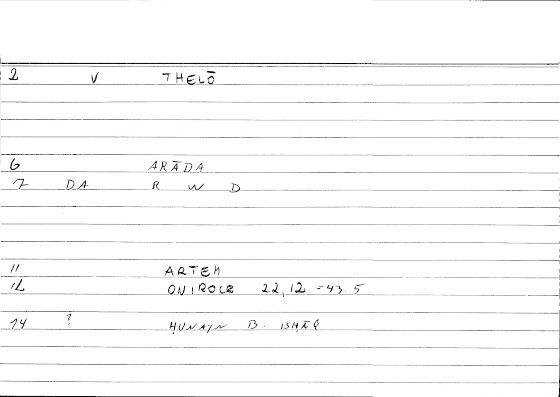 2 V THELŌ
6 ARĀDA
7 DA R W D
11 ARTEM
12 ONIROCR 22,12 - 43.5
14 ? ḤUNAYN B. ISḤĀQ